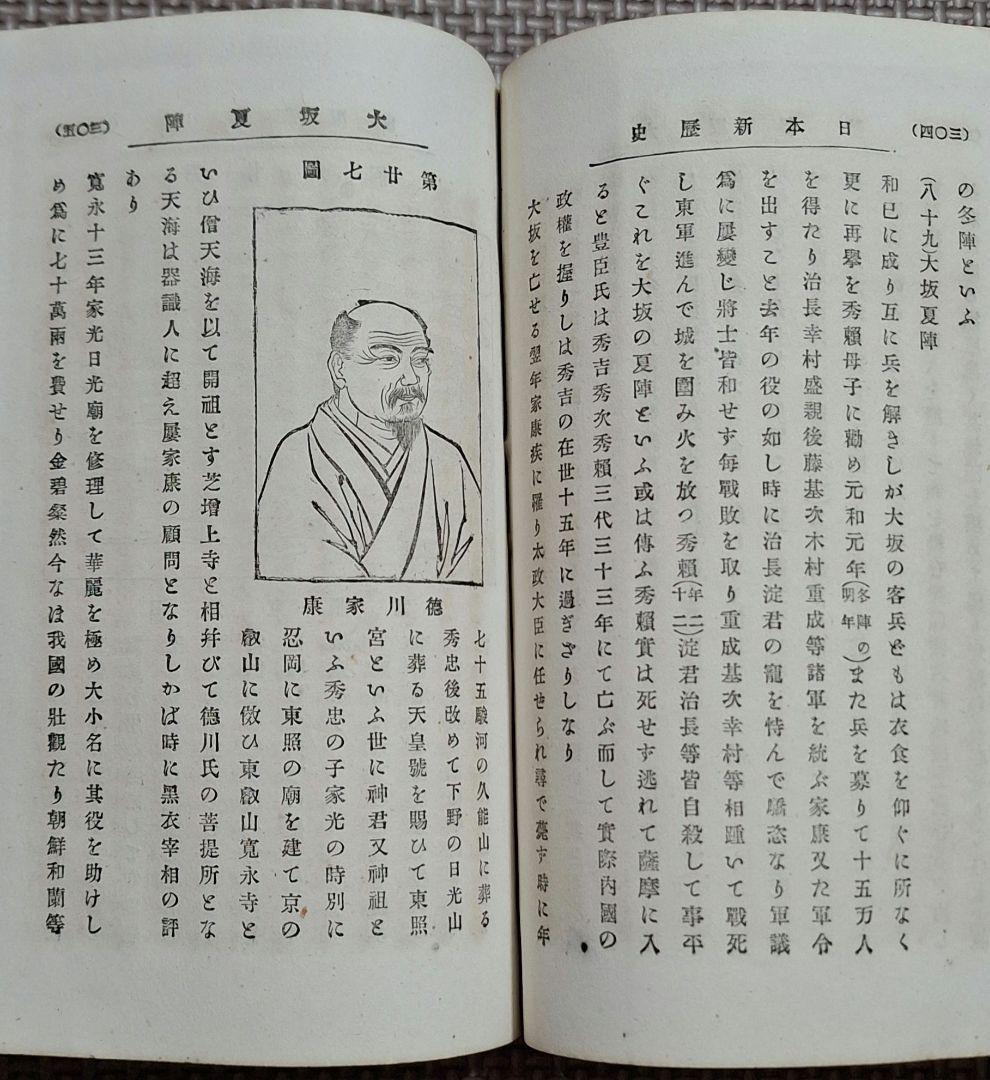 (三〇四)
日本新歷史
の冬陣といふ
(八十九)大坂夏陣
和已に成り互に兵を解きしが大坂の客兵どもは衣食を仰ぐに所なく
更に再擧を秀賴母子に勸め元和元年(冬陣の明年)また兵を募りて十五万人
を得たり治長幸村盛親後藤基次木村重成等諸軍を統ぶ家康又た軍令
を出すこと去年の役の如し時に治長淀君の寵を恃んで驕恣なり軍議
爲に屢變じ將士皆和せず每戰敗を取り重成基次幸村等相踵いて戰死
し東軍進んで城を圍み火を放つ秀賴(年二十二)淀君治長等皆自殺して事平
ぐこれを大坂の夏陣といふ或は傳ふ秀賴實は死せず逃れて薩摩に入
ると豊臣氏は秀吉秀次秀賴三代三十三年にて亡ぶ而して實際內國の
政權を握りしは秀吉の在世十五年に過ぎざりしなり
大坂を亡せる翌年家康疾に罹り太政大臣に任せられ尋で薨ず時に年
大坂夏陣
(三〇五)
第廿七圖
德川家康
七十五駿河の久能山に葬る
秀忠後改めて下野の日光山
に葬る天皇號を賜ひて東照
宮といふ世に神君又神祖と
いふ秀忠の子家光の時別に
忍岡に東照の廟を建て京の
叡山に倣ひ東叡山寬永寺と
いひ僧天海を以て開祖とす芝增上寺と相幷びて德川氏の菩提所とな
る天海は器識人に超え屢家康の顧問となりしかば時に黑衣宰相の評
あり
寬永十三年家光日光廟を修理して華麗を極め大小名に其役を助けし
め爲に七十萬兩を費せり金碧粲然今なほ我國の壯觀たり朝鮮和蘭等